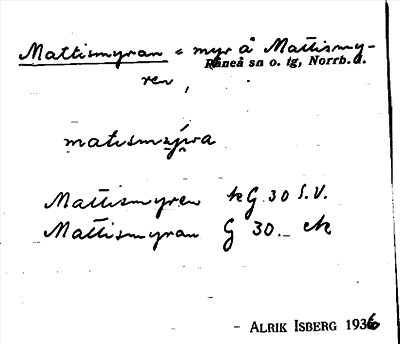 Mattismyran = myr å Mattismy-
Råneå sn o. tg, Norrb. l.
ren,
matismyra
Mattismyren kG 30 S.V.
Mattismyran G 30
- ALRIK ISBERG 1936